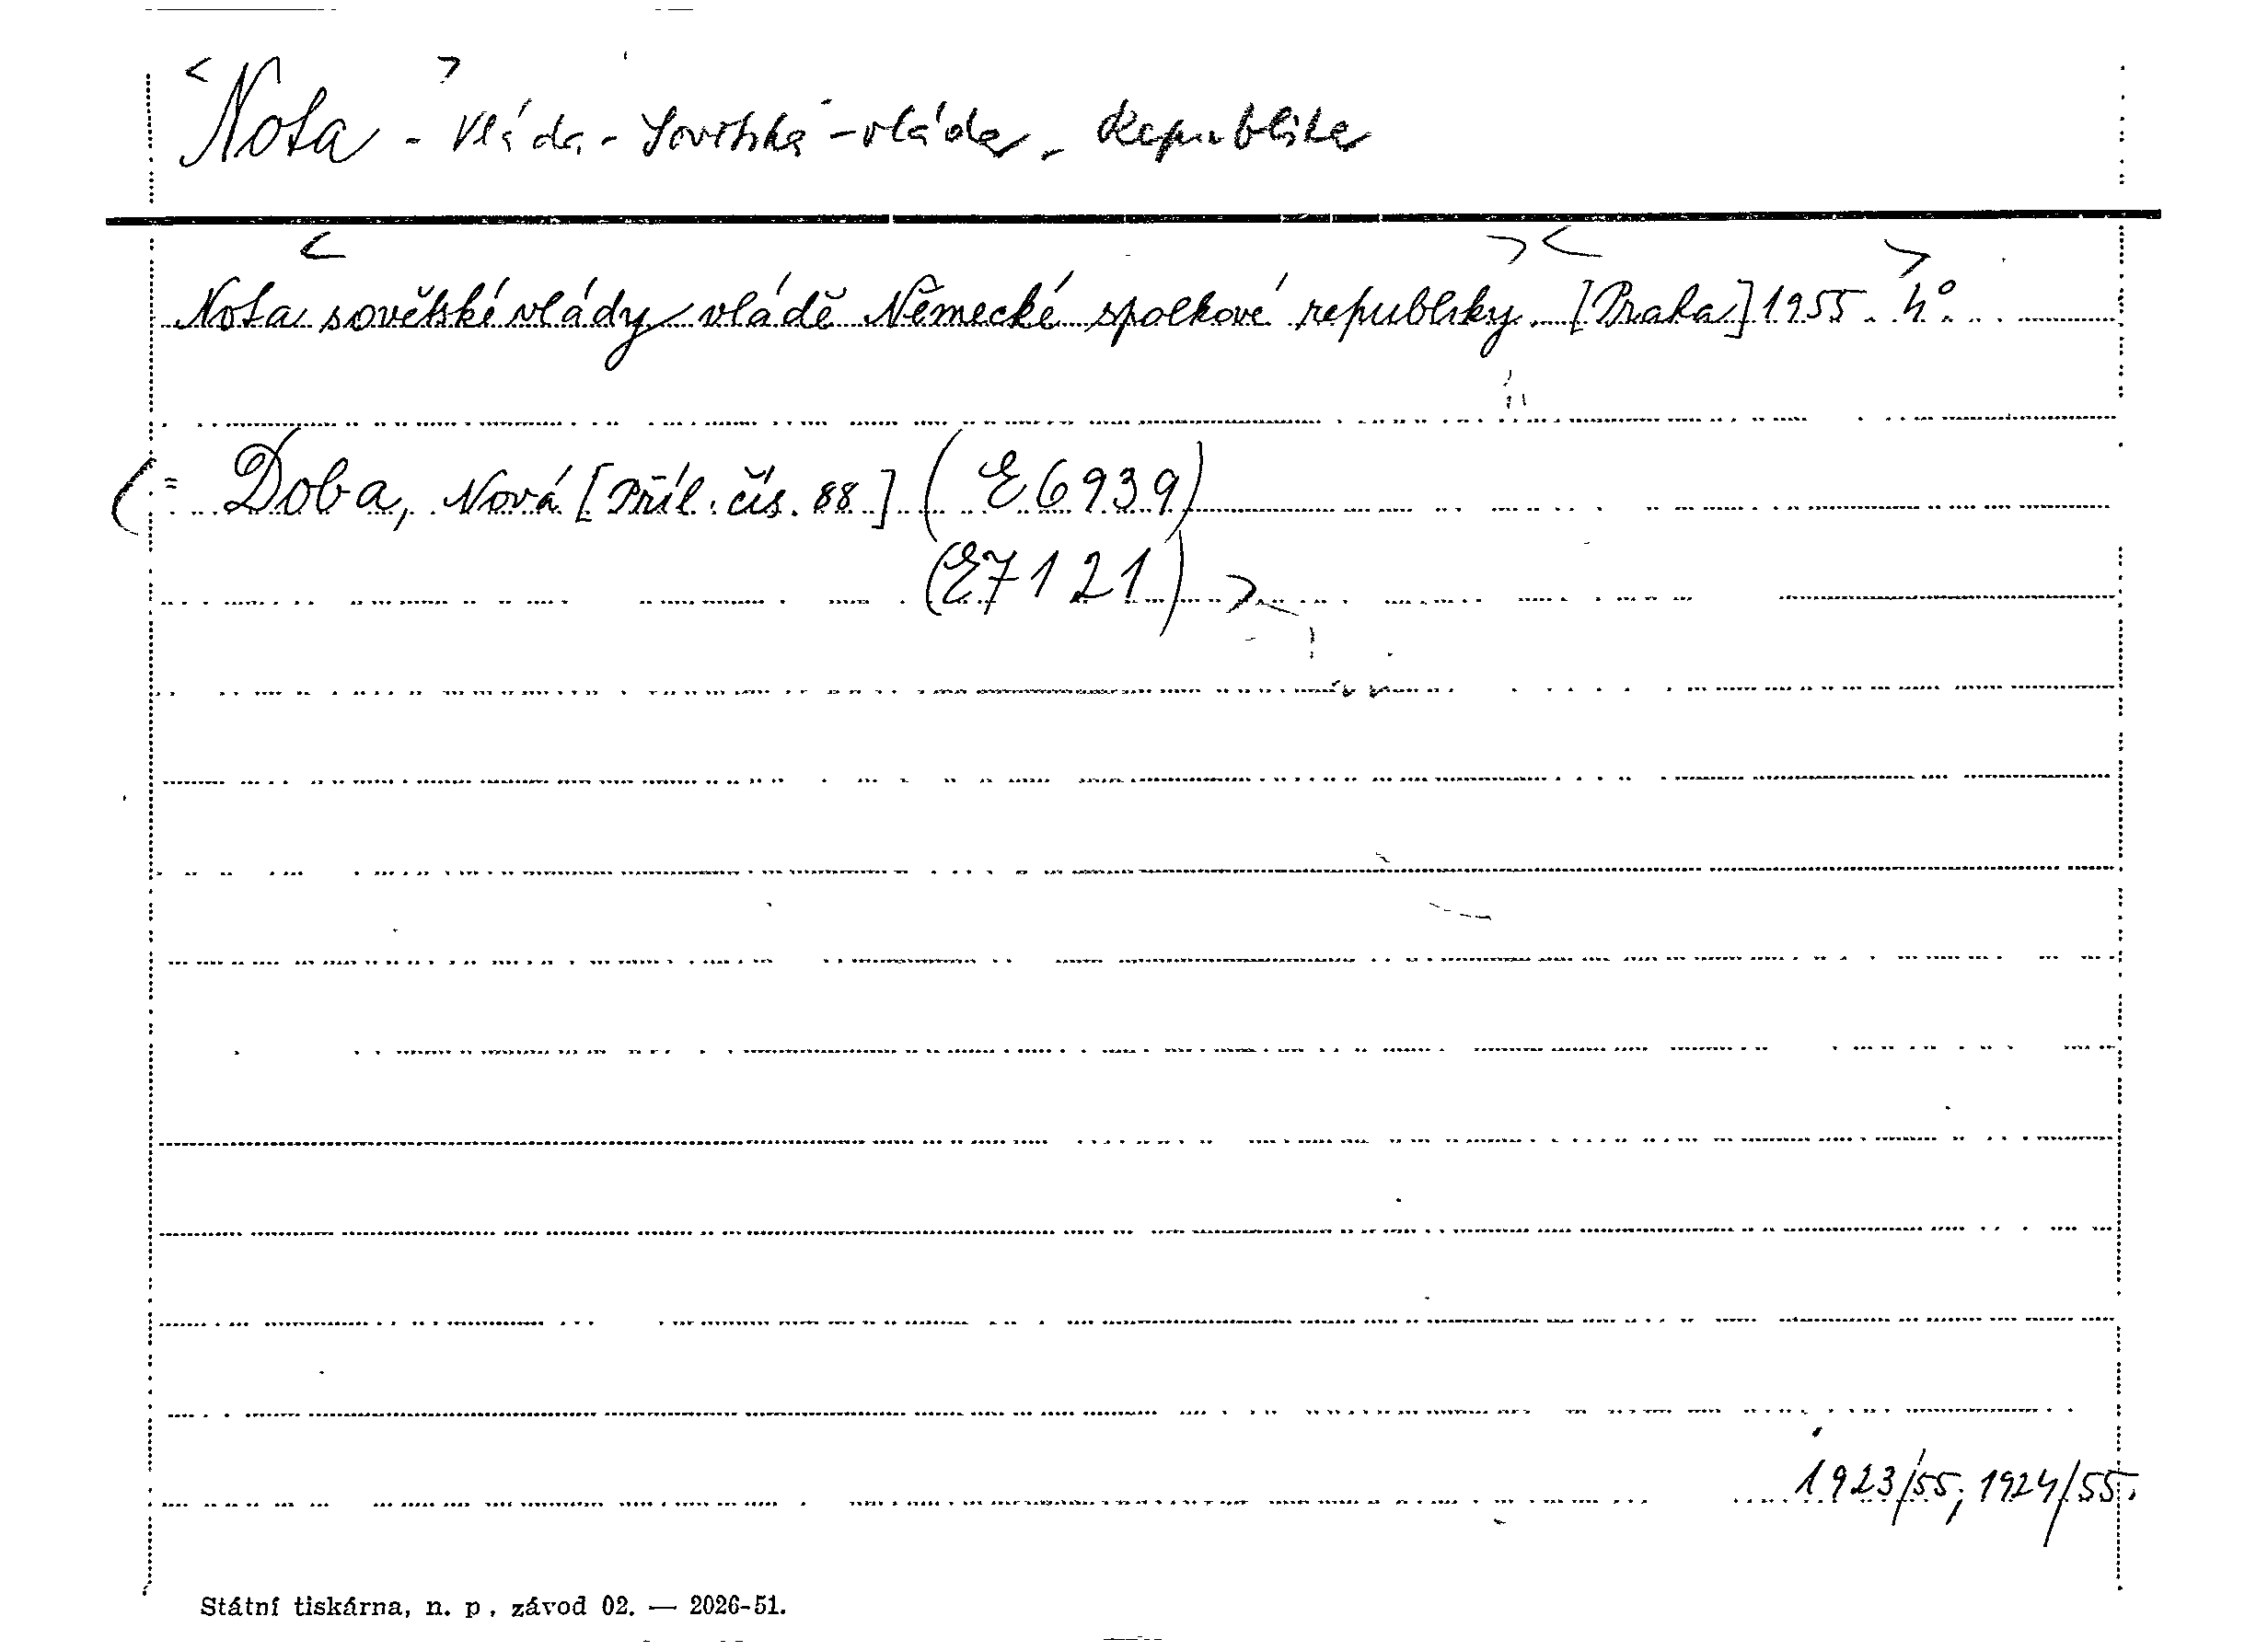 <Nota> - Vláda - Sovětská - vláda - Republika
Nota <sovětské vlády vládě Německé spolkové republiky.> <[Praha] 1955. 4°.>
(= Doba, Nová [Příl. čís. 88] (E6939)
(E7121) >
1923/55, 1924/55.
Státní tiskárna, n. p., závod 02. — 2026-51.